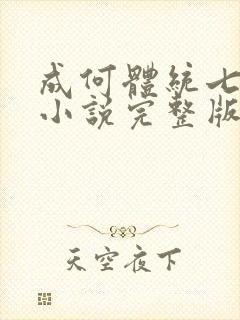 成何體統七
小說完整版
天空夜下